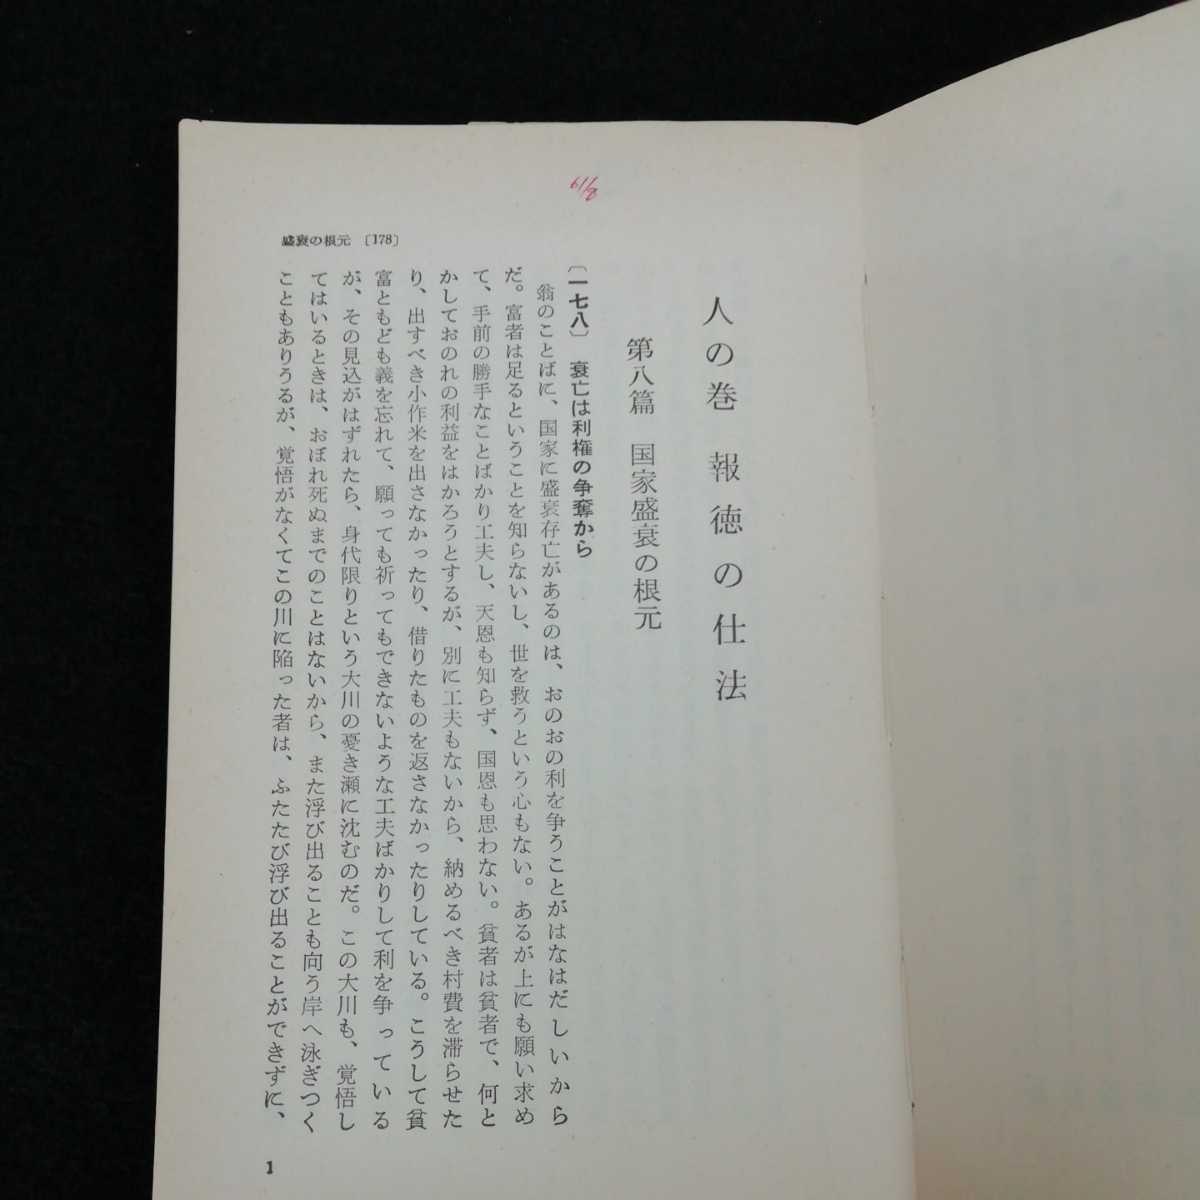 人の巻 報徳の仕法
第八篇 国家盛衰の根元
〔一七八〕 衰亡は利権の争奪から
翁のことばに、国家に盛衰存亡があるのは、おのおの利を争うことがはなはだしいから
だ。富者は足るということを知らないし、世を救うという心もない。あるが上にも願い求め
て、手前の勝手なことばかり工夫し、天恩も知らず、国恩も思わない。貧者は貧者で、何と
かしておのれの利益をはかろうとするが、別に工夫もないから、納めるべき村費を滞らせた
り、出すべき小作米を出さなかったり、借りたものを返さなかったりしている。こうして貧
富ともども義を忘れて、願っても祈ってもできないような工夫ばかりして利を争っている
が、その見込がはずれたら、身代限りという大川の憂き瀬に沈むのだ。この大川も、覚悟し
てはいるときは、おぼれ死ぬまでのことはないから、また浮び出ることも向う岸へ泳ぎつく
こともありうるが、覚悟がなくてこの川に陥った者は、ふたたび浮び出ることができずに、
盛衰の根元 〔178〕
1